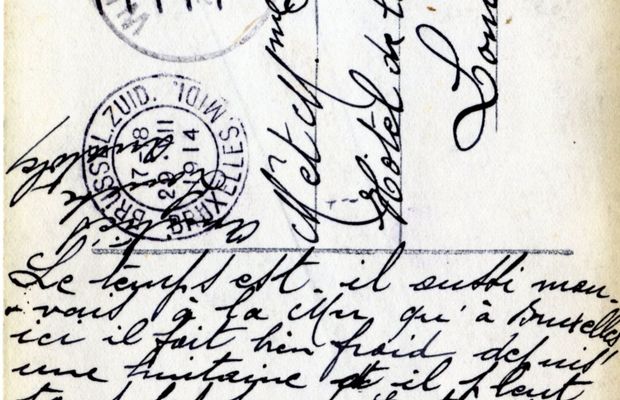 BRUSSAL. ZUID. BRUXELLES. MIDI.
17-18
29 II
1914
Mr et Mme
Hôtel de
Lou
Le temps est-il aussi mau-
vais à la Mer qu'à Bruxelles
ici il fait bien froid depuis
une huitaine et il pleut